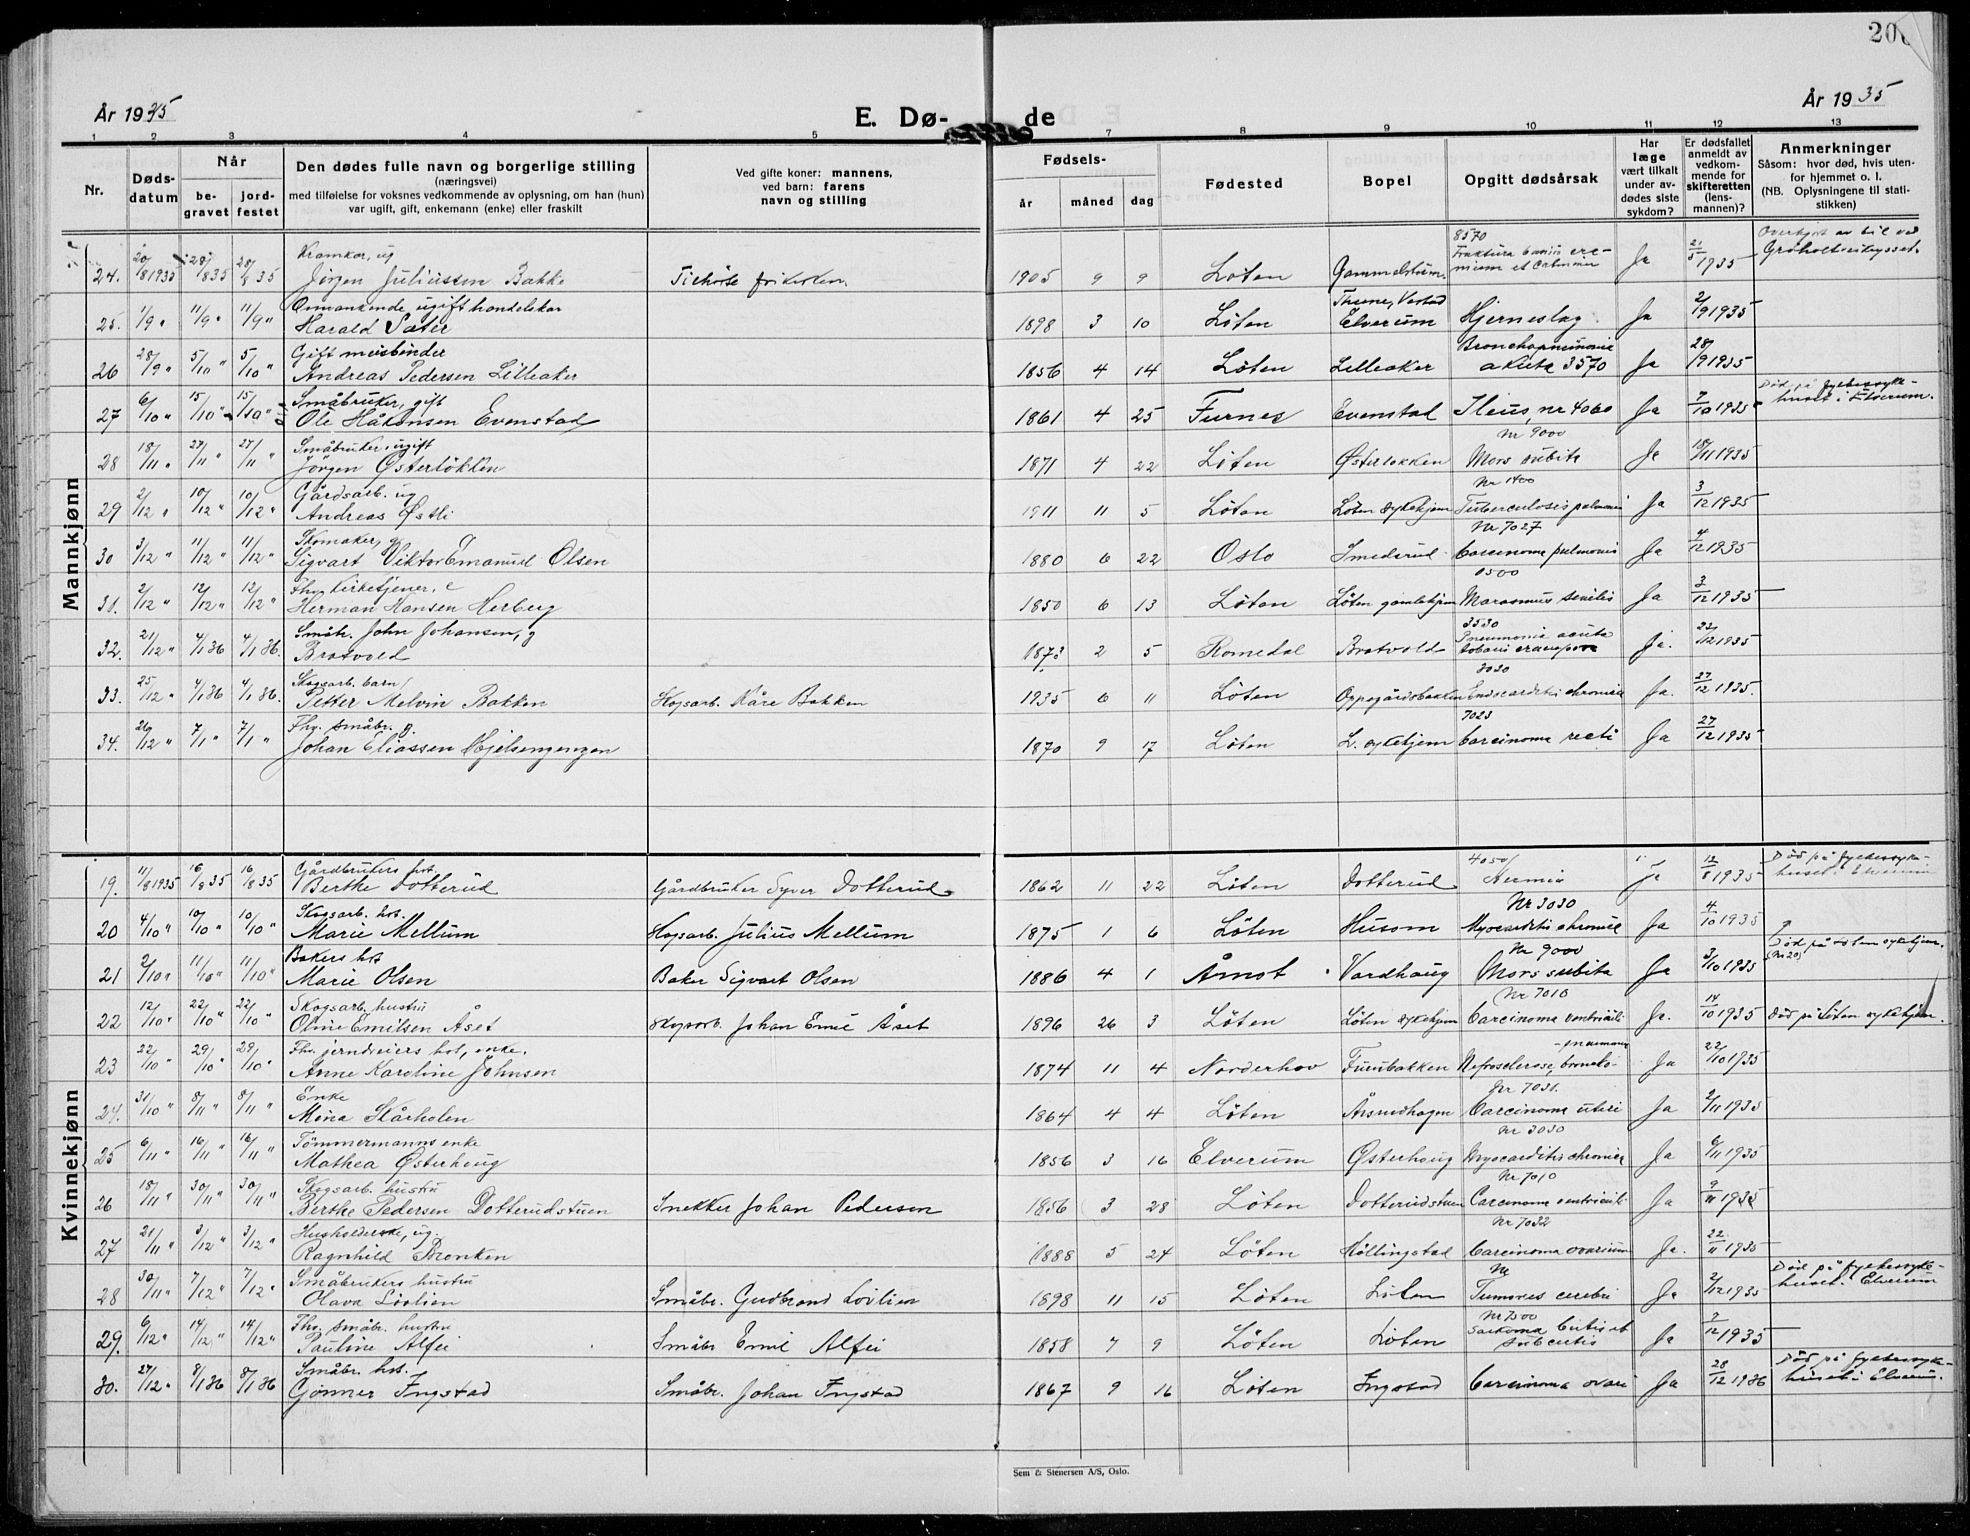 206
År 1935
E. Dø- de
År 1935
1 2 3 4 5 7 8 9 10 11 12 13
Nr.
Døds-
datum
Når
be-
gravet
jord-
festet
Den dødes fulle navn og borgerlige stilling
(næringsvei)
med tilføielse for voksnes vedkommende av oplysning, om han (hun)
var ugift, gift, enkemann (enke) eller fraskilt
Ved gifte koner: mannens,
ved barn: farens
navn og stilling
Fødsels-
år måned dag
Fødested
Bopel
Opgitt dødsårsak
Har
læge
vært tilkalt
under av-
dødes siste
sykdom?
Er dødsfallet
anmeldt av
vedkom-
mende for
skifteretten
(lens-
mannen)?
Anmerkninger
Såsom: hvor død, hvis uten-
for hjemmet o. l.
(NB. Oplysningene til stati-
stikken)
Mannkjønn
24. 20/8 1935 28/8 35 28/8 35 Kramkar, ug
Jörgen Juliussen Bakke 1905 9 9 Løten Ja 21/5 1935
25. 1/9 " 11/9 " 11/9 " Omvankende ugift handelskar
Harald Sæter 1898 3 10 Löten Elverum Hjerneslag Ja 2/9 1935
26 28/9 " 5/10 " 5/10 " Gift meisbinder
Andreas Pedersen Lilleaker 1856 4 14 Löten Lilleaker Bronchopneumonia
akuta 3570 Ja 28/9 1935
27 6/10 " 15/10 " 15/10 " Småbruker, gift
Ole Håkonsen Evenstad 1861 4 25 Furnes Evenstad Ileus, nr 4060 Ja 7/10 1935 Død på fylkessyke-
huset i Elverum.
28 18/11 " 27/11 " 27/11 " Småbruker, ugift
Jörgen Østerløkken 1871 4 22 Löten Østerløkken Nr 9000
Mors subita Ja 18/11 1935
29 2/12 " 10/12 " 10/12 " Gårdsarb. ug
Andreas Østli 1911 11 5 Löten Löten sykehjem Nr 1400
Tuberculosis pulmonis Ja 3/12 1935
30 3/12 " 11/12 " 11/12 " Skomaker, g
Sigvart Viktor Emanuel Olsen 1880 6 22 Oslo Imedsrud Nr 7027
Carcinoma pulmonis Ja 4/12 1935
31. 2/12 " 12/12 " 12/12 " Fhv. kirketjener, e
Herman Hansen Herberg 1850 6 13 Löten Löten gamlehjem 0500
Marasmus senilis Ja 3/12 1935
32. 21/12 " 4/1 36 4/1 36. Småbr. John Johansen, g
Bratvold 1873 2 5 Romedal Bratvold 3530
Pneumonia acuta Ja. 23/12 1935
33. 25/12 " 4/1 36 4/1 36. Skogsarb. barn
Petter Melvin Bakken Skogsarb. Kåre Bakken 1935 6 11 Löten Oppegårdsbakken 3030
Endocarditis chronica Ja. 27/12 1935.
34. 26/12 " 7/1 " 7/1 " Fhv. småbr. g.
Johan Eliassen Hjelsengengen 1870 9 17 Löten L. sykehjem 7023
Carcinoma recti Ja 27/12 1935
Kvinnekjønn
19. 11/8 1935 16/8 35 16/8 35 Gårdbrukers hst.
Berthe Dotterud Gårdbruker Syver Dotterud 1862 11 22 Löten Dotterud 4050
Hernia Ja 12/8 1935 Död på fylkessyke-
huset i Elverum
20 4/10 " 10/10 " 10/10 " Skogsarb. hst.
Marie Mellum Skogsarb. Julius Mellum 1875 1 6 Löten Husom Nr 3030
Myocarditis chronica Ja 4/10 1935
21 2/10 " 11/10 " 11/10 " Bakers hst
Marie Olsen Baker Sigvart Olsen 1886 4 1 Åmot Vardhaug Nr 9000
Mors subita Ja 3/10 1935 Död på Löten sykehjem.
(Nr 20)
22 12/10 " 22/10 " 22/10 " Skogsarb. hustru
Oline Emilsen Åset Skogsarb. Johan Emil Åset 1896 26 3 Löten Löten sykehjem Nr 7010
Carcinoma ventriculi Ja. 14/10 1935 Död på Löten sykehjem.
23 22/10 " 29/10 " 29/10 " Fhv. jerndreiers hst, enke.
Anne Karoline Johnsen 1874 11 4 Norderhov Furubakken Nefrosclerose, broncho-
pneumoni Ja 22/10 1935
24. 31/10 " 8/11 " 8/11 " Enke
Mina Skårholen 1864 4 4 Löten Årsrudhagen Nr 7031.
Carcinoma uteri Ja 2/11 1935
25 6/11 " 16/11 " 16/11 " Tömmermanns enke
Mathea Østerhaug 1856 3 16 Elverum Østerhaug Nr 3030
Myocarditis chronica Ja 6/11 1935
26 18/11 " 30/11 " 30/11 " Skogsarb. hustru
Berthe Pedersen Dotterudstuen Snekker Johan Pedersen 1856 3 28 Löten Dotterudstuen Nr 7010
Carcinoma ventriculi Ja 9/11 1935
27 21/11 " 3/12 " 3/12 " Husholderske, ug.
Ragnhild Brenken 1888 5 24 Löten Höllingstad Nr 7032
Carcinoma ovarium Ja. 22/11 1935
28 30/11 " 7/12 " 7/12 " Småbrukers hustru
Olava Lövlien Småbr. Gudbrand Lövlien 1898 11 15 Löten Löten Nr
Tumores cerebri Ja 2/12 1935 Död på fylkessyke-
huset i Elverum
29. 6/12 " 14/12 " 14/12 " Fhv. småbr. hustru
Pauline Alfei Småbr Emil Alfei 1858 7 9 Löten Löten Nr 7500
Sarkoma cutis et
subcutis Ja 7/12 1935
30. 27/12 " 8/1 36 8/1 36 Småbr. hst.
Gönner Ingstad Småbr. Johan Ingstad 1867 9 16 Löten Ingstad Carcinoma ovari Ja 28/12 1936 Död på fylkessyke-
huset i Elverum.
Sem & Stenersen A/S, Oslo.